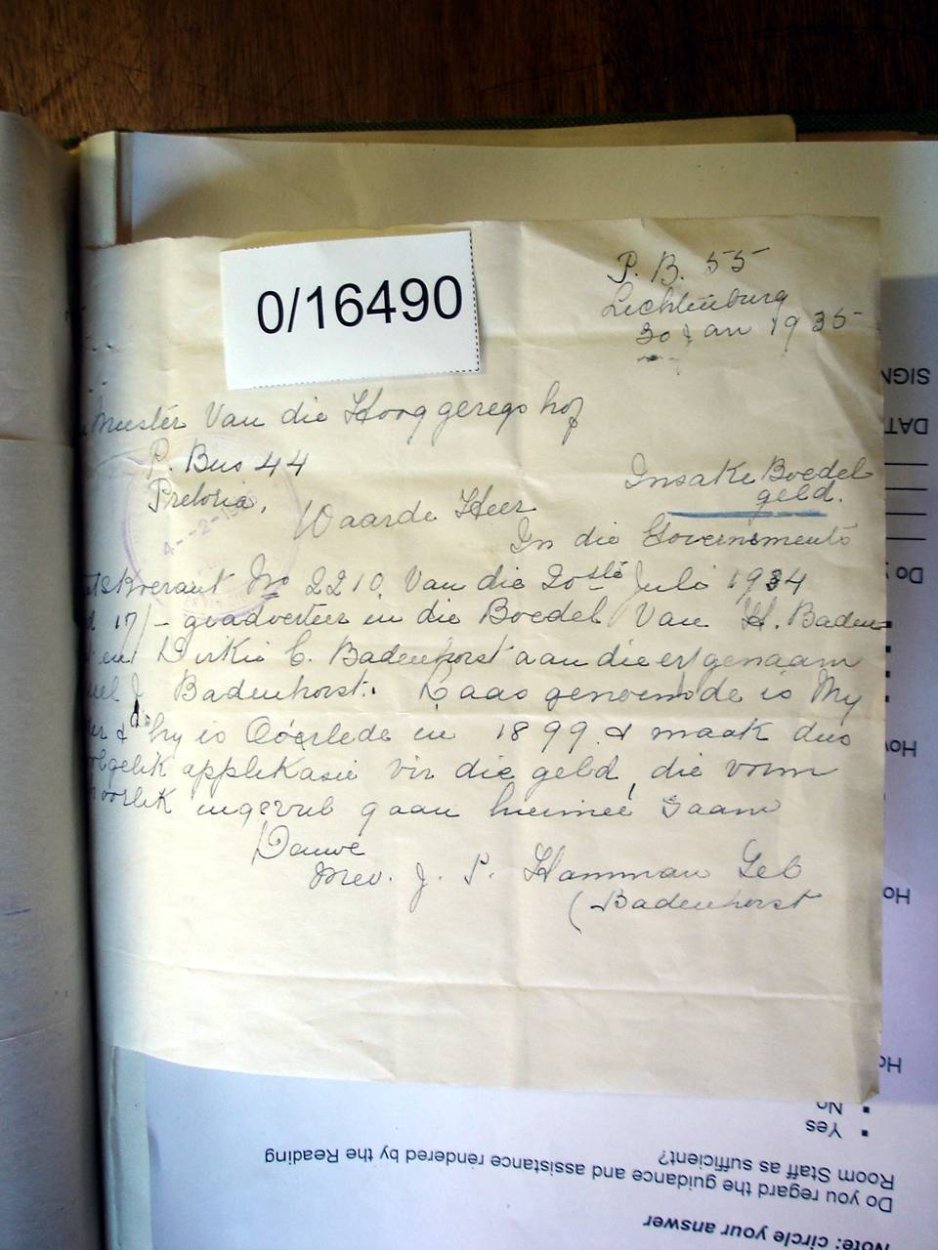 0/16490
P. B. 55
Lichtenburg
30 Jan 1935
Meester Van die Hooggeregshof
P. Bus 44
Pretoria.
Insake Boedel
geld.
Waarde Heer
In die Governments
No 2210. Van die 20ste Juli 1934
17/- geadverteer in die Boedel Van H. Baden
en Dirkie C. Badenhorst aan die erfgenaam
J Badenhorst. Laas genoemde is My
& hy is Oorlede in 1899 & maak dus
applikasie vir die geld, die vorm
ingevul gaan hiermee saam
Douwe
Mev. J. P. Hamman Geb
(Badenhorst
SIGN
DAT
Do y
Hov
Ho
Ho
No
Yes
Room Staff as sufficient?
Do you regard the guidance and assistance rendered by the Reading
Note: circle your answer